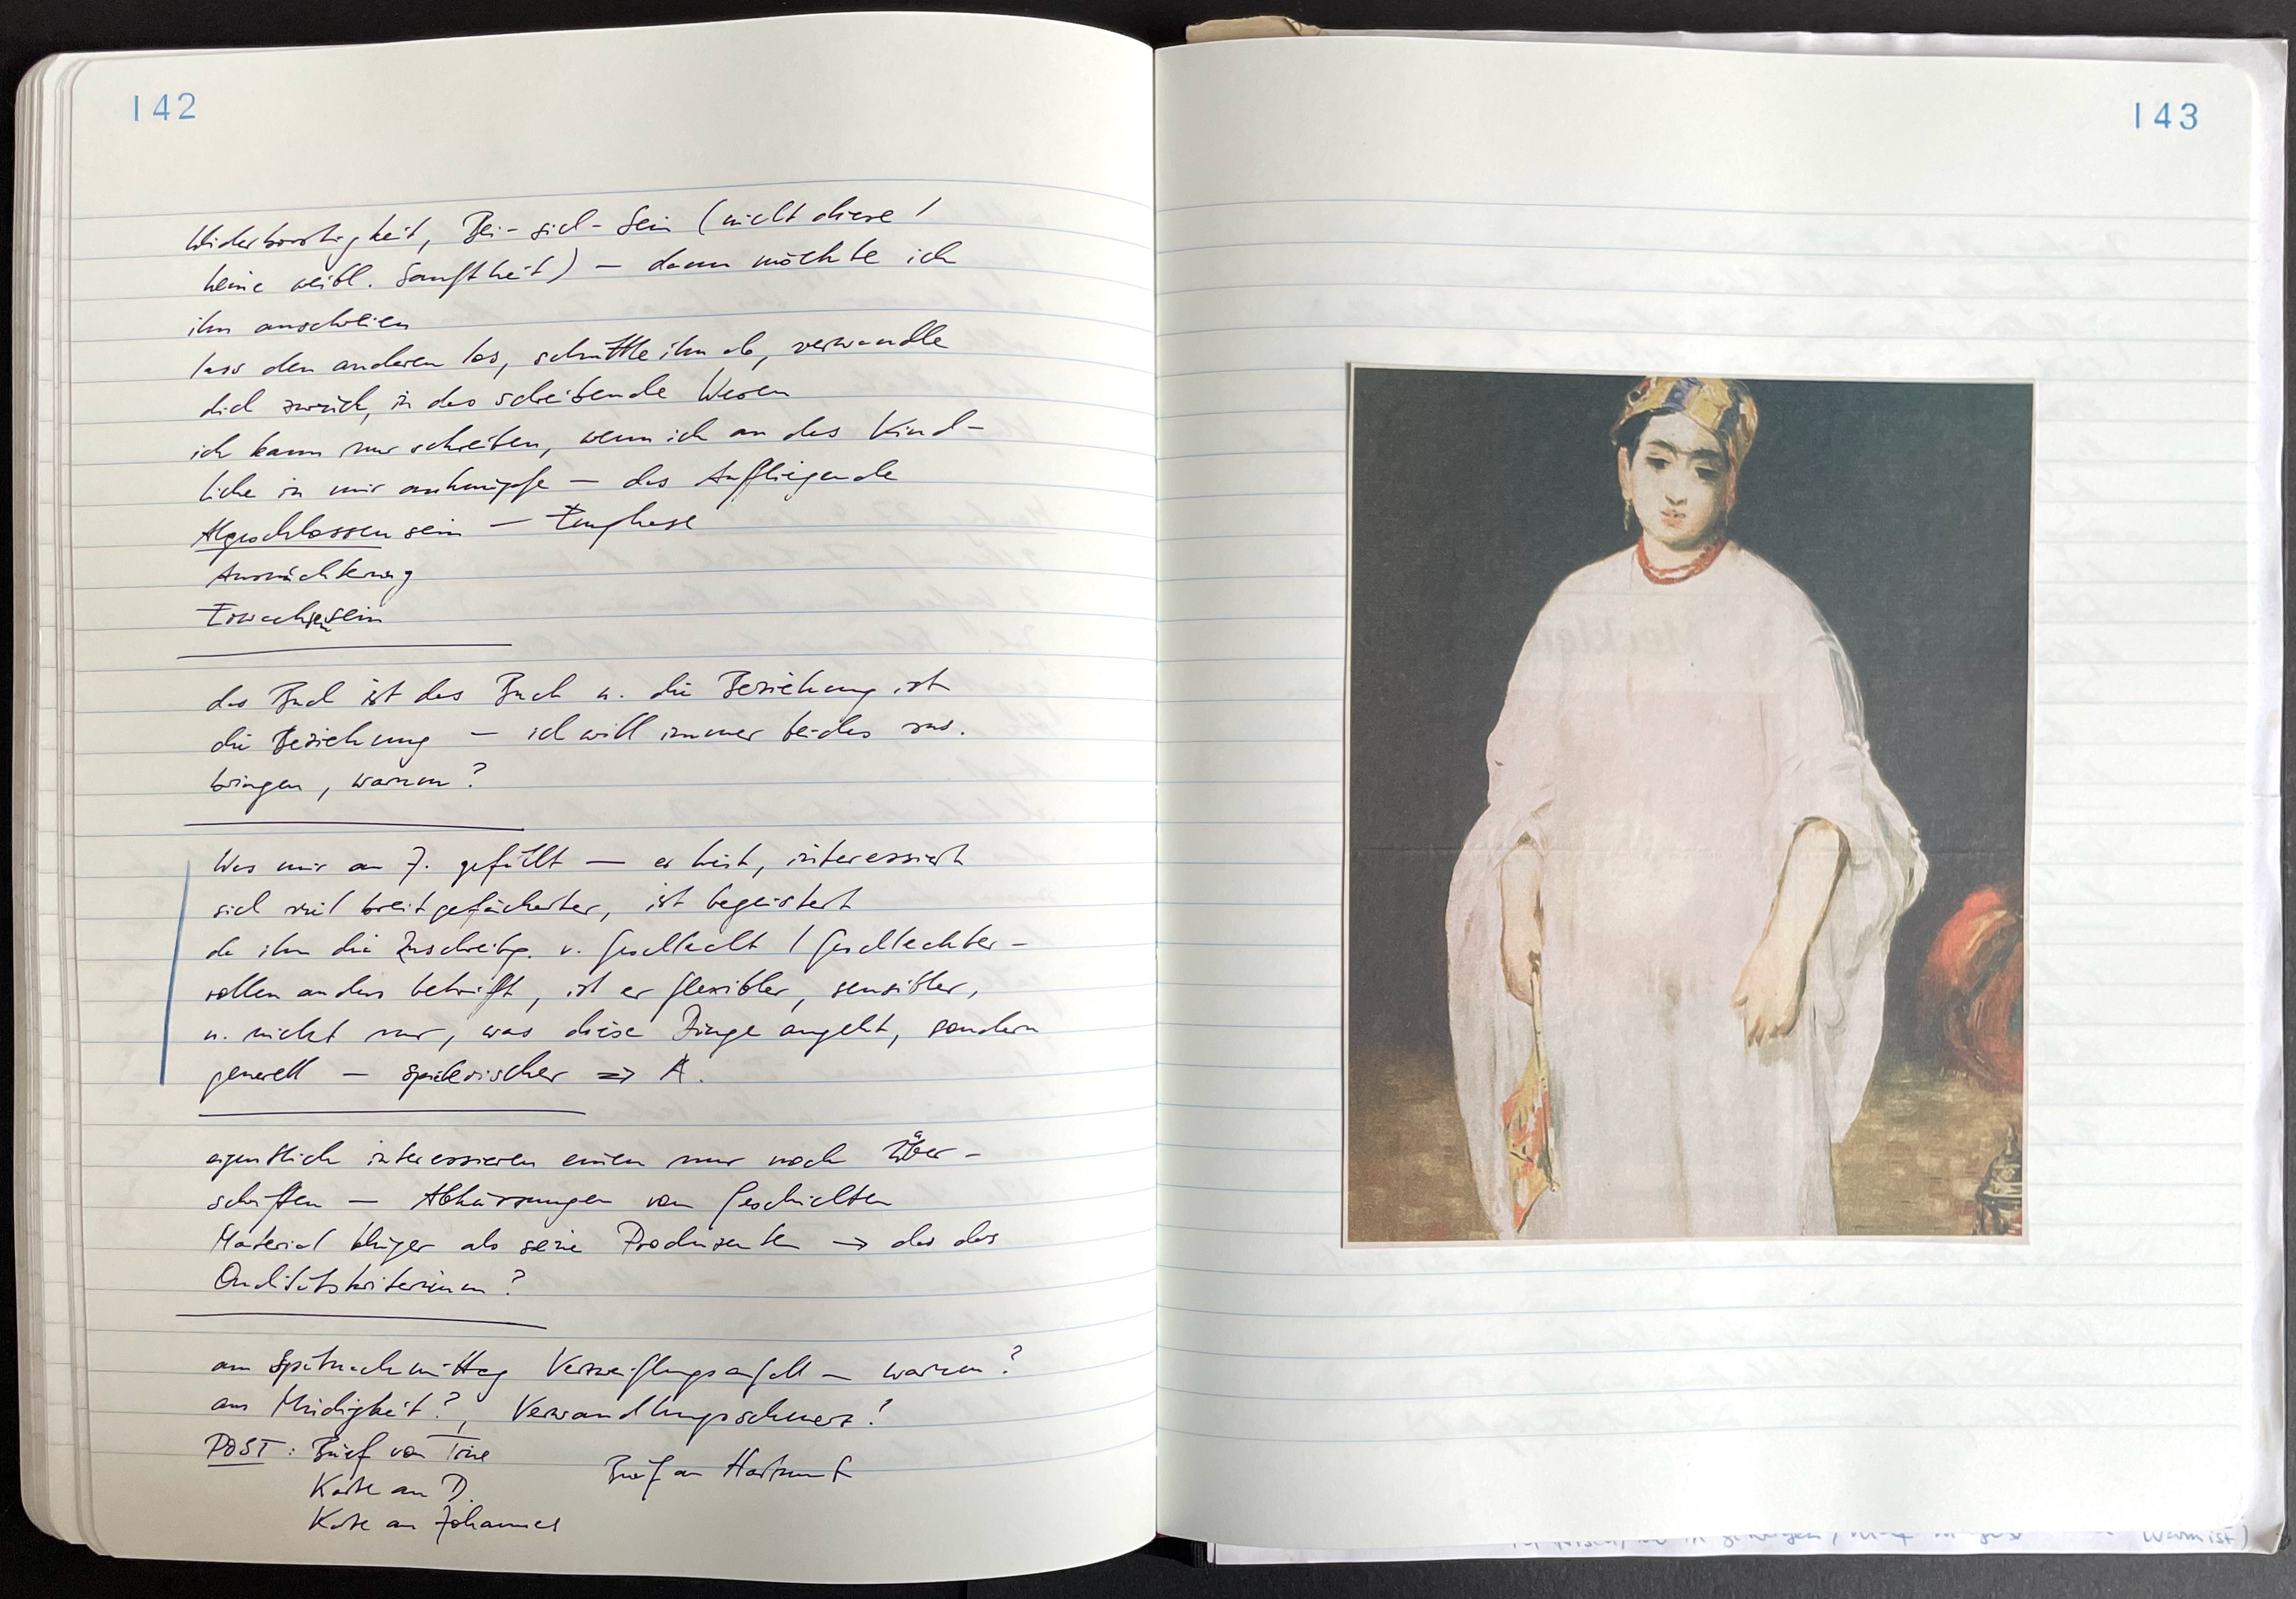 142
Widerborstigkeit, Bei-sich-Sein (nicht diese /
keine weibl. Sanftheit) – dann möchte ich
ihn anschreien
lass den anderen los, schüttle ihn ab, verwandle
dich zurück, in das schreibende Wesen
ich kann nur schreiben, wenn ich an das Kind-
liche in mir anknüpfe – das Auffliegende
Abgeschlossen sein –
Ausnüchterung
Erwachsensein
das Buch ist das Buch u. die Beziehung ist
die Beziehung – ich will immer beides zus.
bringen, warum?
Was mir an J. gefällt – er liest, interessiert
sich viel breitgefächerter, ist begeistert
da ihn die Zuschreibg. v. Geschlecht / Geschlechter-
rollen anders betrifft, ist er flexibler, sensibler,
u. nicht nur, was diese Dinge angeht, sondern
generell – spielerischer => A.
eigentlich interessieren einen nur noch Über-
schriften – Abkürzungen von Geschichten
Material klüger als seine Produzenten → das das
Qualitätskriterium?
am Spätnachmittag Verzweiflungsanfall – warum?
aus Müdigkeit?, Verwandlungsschmerz!
POST: Brief von Trine
Brief an Hartmut
Karte an D.
Karte an Johannes
143
warm ist)